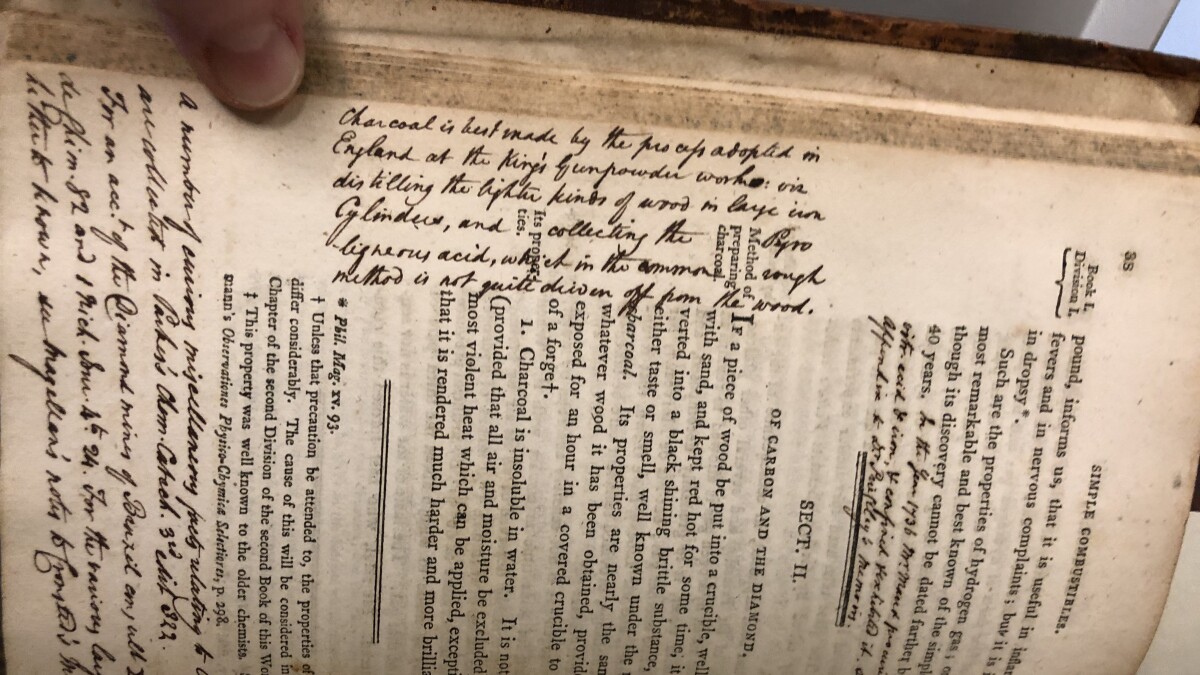 38
SIMPLE COMBUSTIBLES.
Book I.
Division I.
pound, informs us, that it is useful in
fevers and in nervous complaints; but it is
in dropsy*.
Such are the properties of hydrogen gas;
most remarkable and best known of the simpl
though its discovery cannot be dated farther b
40 years. In the year 1736 Mr. Maud
appendix to Dr. Priestley's memoir.
SECT. II.
OF CARBON AND THE DIAMOND.
Method of
preparing
charcoal.
IF a piece of wood be put into a crucible, well
with sand, and kept red hot for some time; it
verted into a black shining brittle substance,
either taste or smell, well known under the
charcoal. Its properties are nearly the sam
whatever wood it has been obtained, provid
exposed for an hour in a covered crucible to
of a forge†.
Its proper-
ties.
1. Charcoal is insoluble in water. It is not
(provided that all air and moisture be excluded
most violent heat which can be applied, excepti
that it is rendered much harder and more brillia
* Phil. Mag. xv. 93.
† Unless that precaution be attended to, the properties of
differ considerably. The cause of this will be considered in
Chapter of the second Division of the second Book of this Wo
‡ This property was well known to the older chemists.
mann's Observationes Physico-Chymicæ Selectiores, p. 298.
Charcoal is best made by the process adopted in
England at the King's Gunpowder works: viz
distilling the lighter kinds of wood in large iron
Cylinders, and collecting the Pyro
-ligneous acid, which in the common rough
method is not quite driven off from the wood.
a number of curious miscellaneous facts relating to
are collected in Parkes's Chem. Catech. 3rd edit
For an acct. of the Diamond mines of Brazil consult
82 and Nich. Jour. 4to 24. For the various
hitherto known, see Magellan's notes to Cronsted's